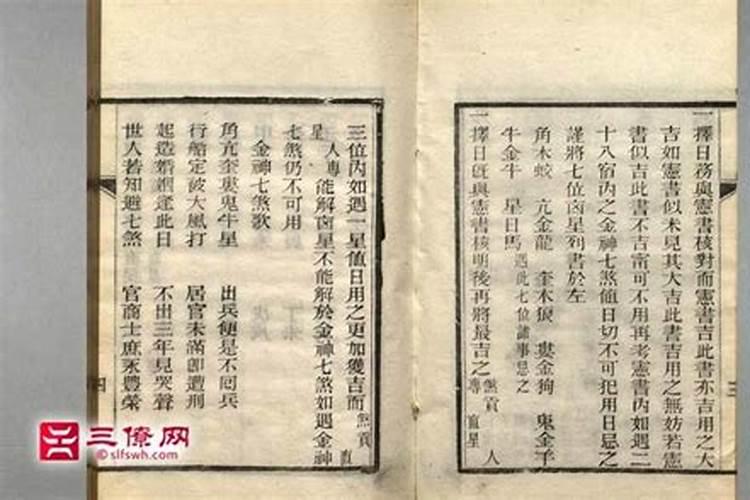 一擇日務與憲書核對而憲書吉此書亦吉用之大
吉如憲書似未見其大吉此書吉用之無妨若憲
書似吉此書不吉甯可不用再考憲書內如遇二
十八宿內之金神七煞值日切不可犯用日忌之
謹將七位凶星列書於左
角木蛟 亢金龍 奎木狼 婁金狗 鬼金羊
牛金牛 星日馬 遇此七位諸事忌之
一擇日旣與憲書核明後再將最吉之煞貢專直星人
三
三位內如遇一星值日用之更加獲吉而煞貢直
星人專能解凶星不能解於金神七煞如遇金神
七煞仍不可用
金神七煞歌
角亢奎婁鬼牛星 出兵便是不回兵
行船定被大風打 居官未滿即遭刑
起造婚姻逢此日 不出三年見哭聲
世人若知避七煞 官商士庶永豐榮
四
三僚网
©slfswh.com